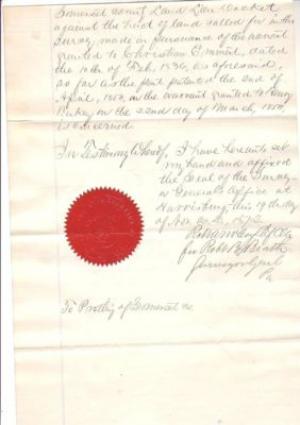 Somerset County Land Lien Docket
against the tract of land called for in the
Survey, made in pursuance of the warrant
granted to Christian C. dated
the 10th of Feb. 1836, as aforesaid,
so far as the patent the 2nd of
April, 1850, on the warrant granted to Henry
on the 22nd day of March, 1850,
is concerned.
In Testimony Whereof, I have hereunto set
my hand and affixed
the Seal of the Survey-
or General's Office at
Harrisburg, this 19th day
of Nov A.D.
for Robt B. Beath
Surveyor Genl
Pa
To Prothy of Somerset Co